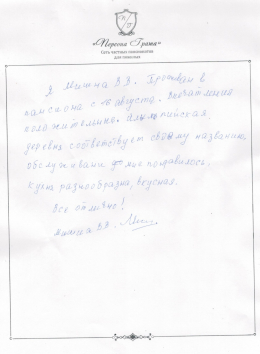 «Первая Грата»
Сеть частных пансионатов
для пожилых
Я Митина В.В. Проживаю в
пансиона с августа. Впечатление
положительные. Олимпийская
деревня соответствует своему названию.
обслуживание мне понравилось.
Кухня разнообразна, вкусная.
Все отлично!
Митина В.В.